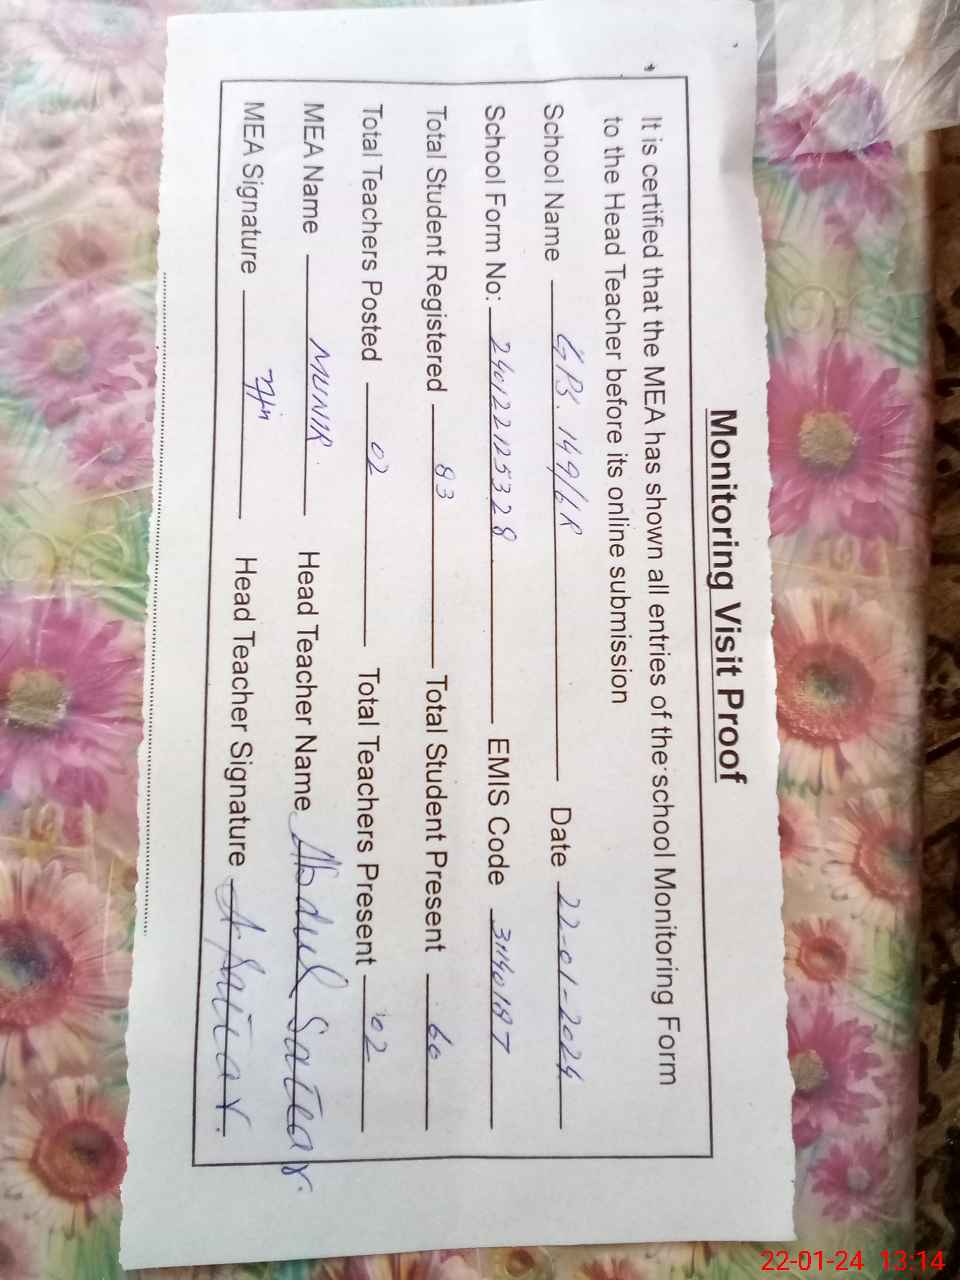 Monitoring Visit Proof
It is certified that the MEA has shown all entries of the school Monitoring Form
to the Head Teacher before its online submission
School Name GPS. 149/6R Date 22-01-2024
School Form No: 240122125328 EMIS Code 31140187
Total Student Registered 83 Total Student Present 60
Total Teachers Posted 02 Total Teachers Present 02
MEA Name MUNIR Head Teacher Name Abdul Sattar
MEA Signature Head Teacher Signature A Sattar.
22-01-24 13:14